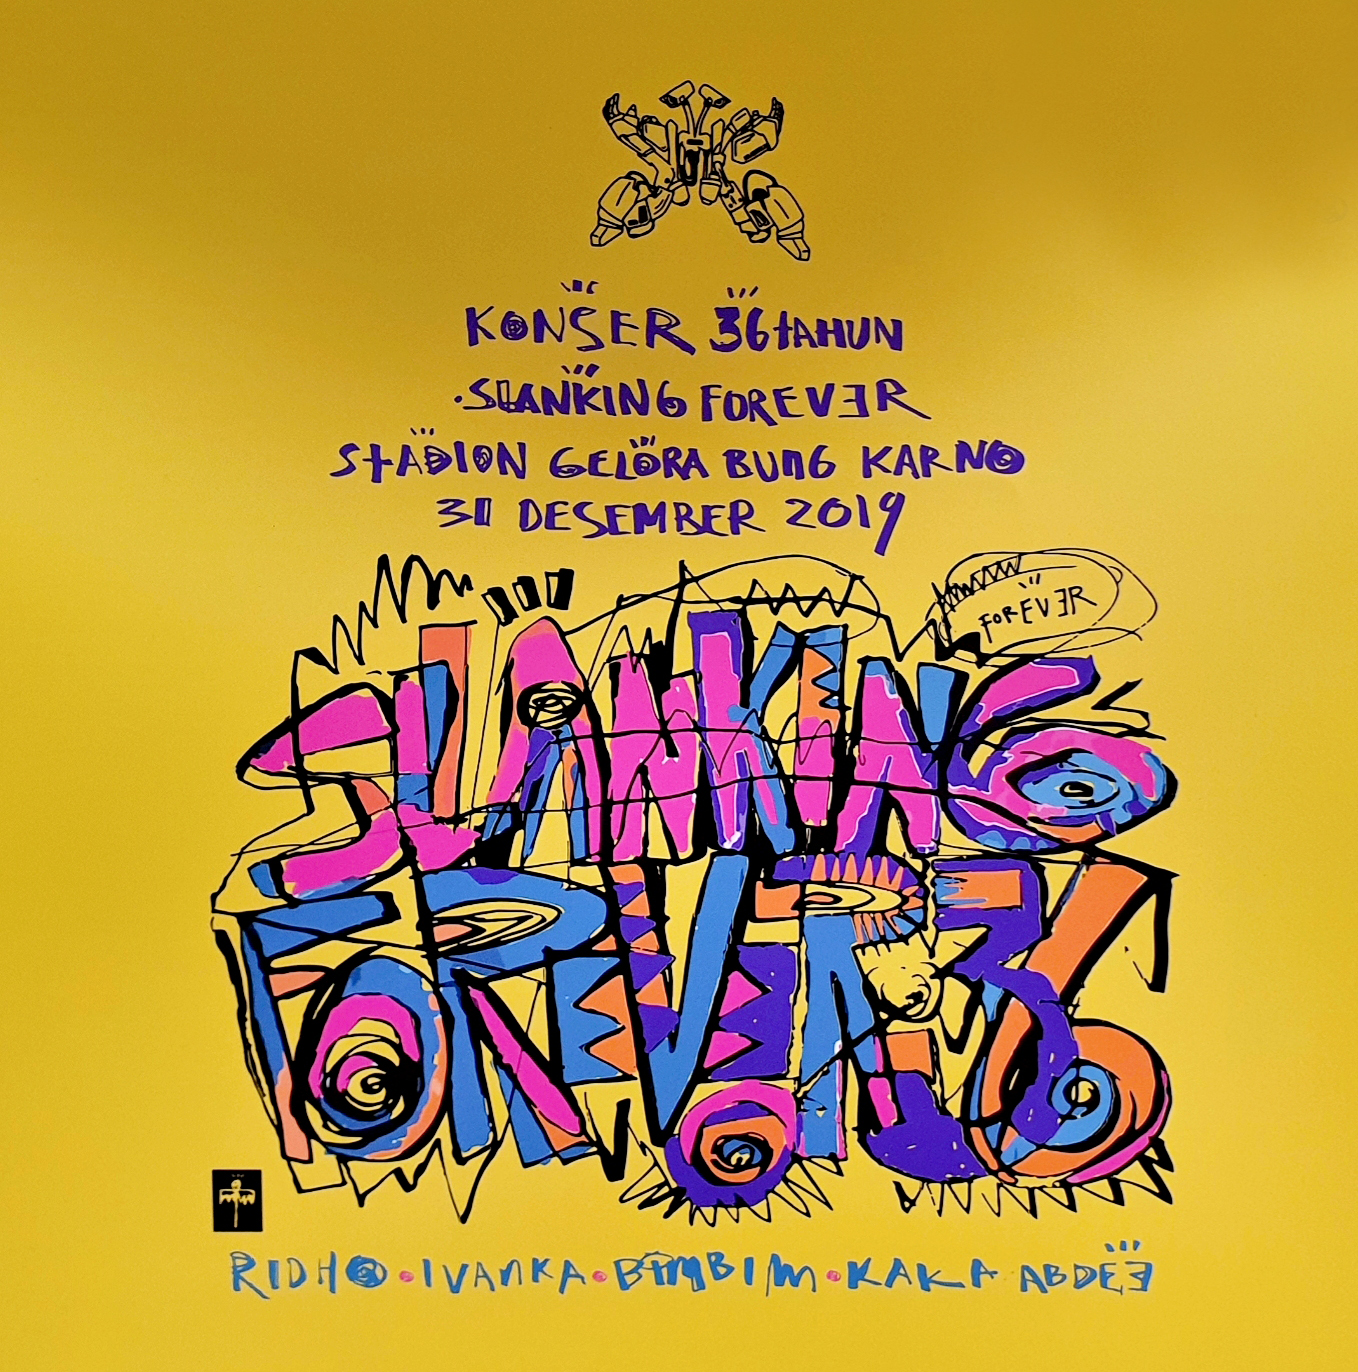 KONSER 36 TAHUN
SLANKING FOREVER
STADION GELORA BUNG KARNO
31 DESEMBER 2019
FOREVER
SLANKING
FORVR36
RIDHO • IVANKA • BIMBIM • KAKA ABDEE